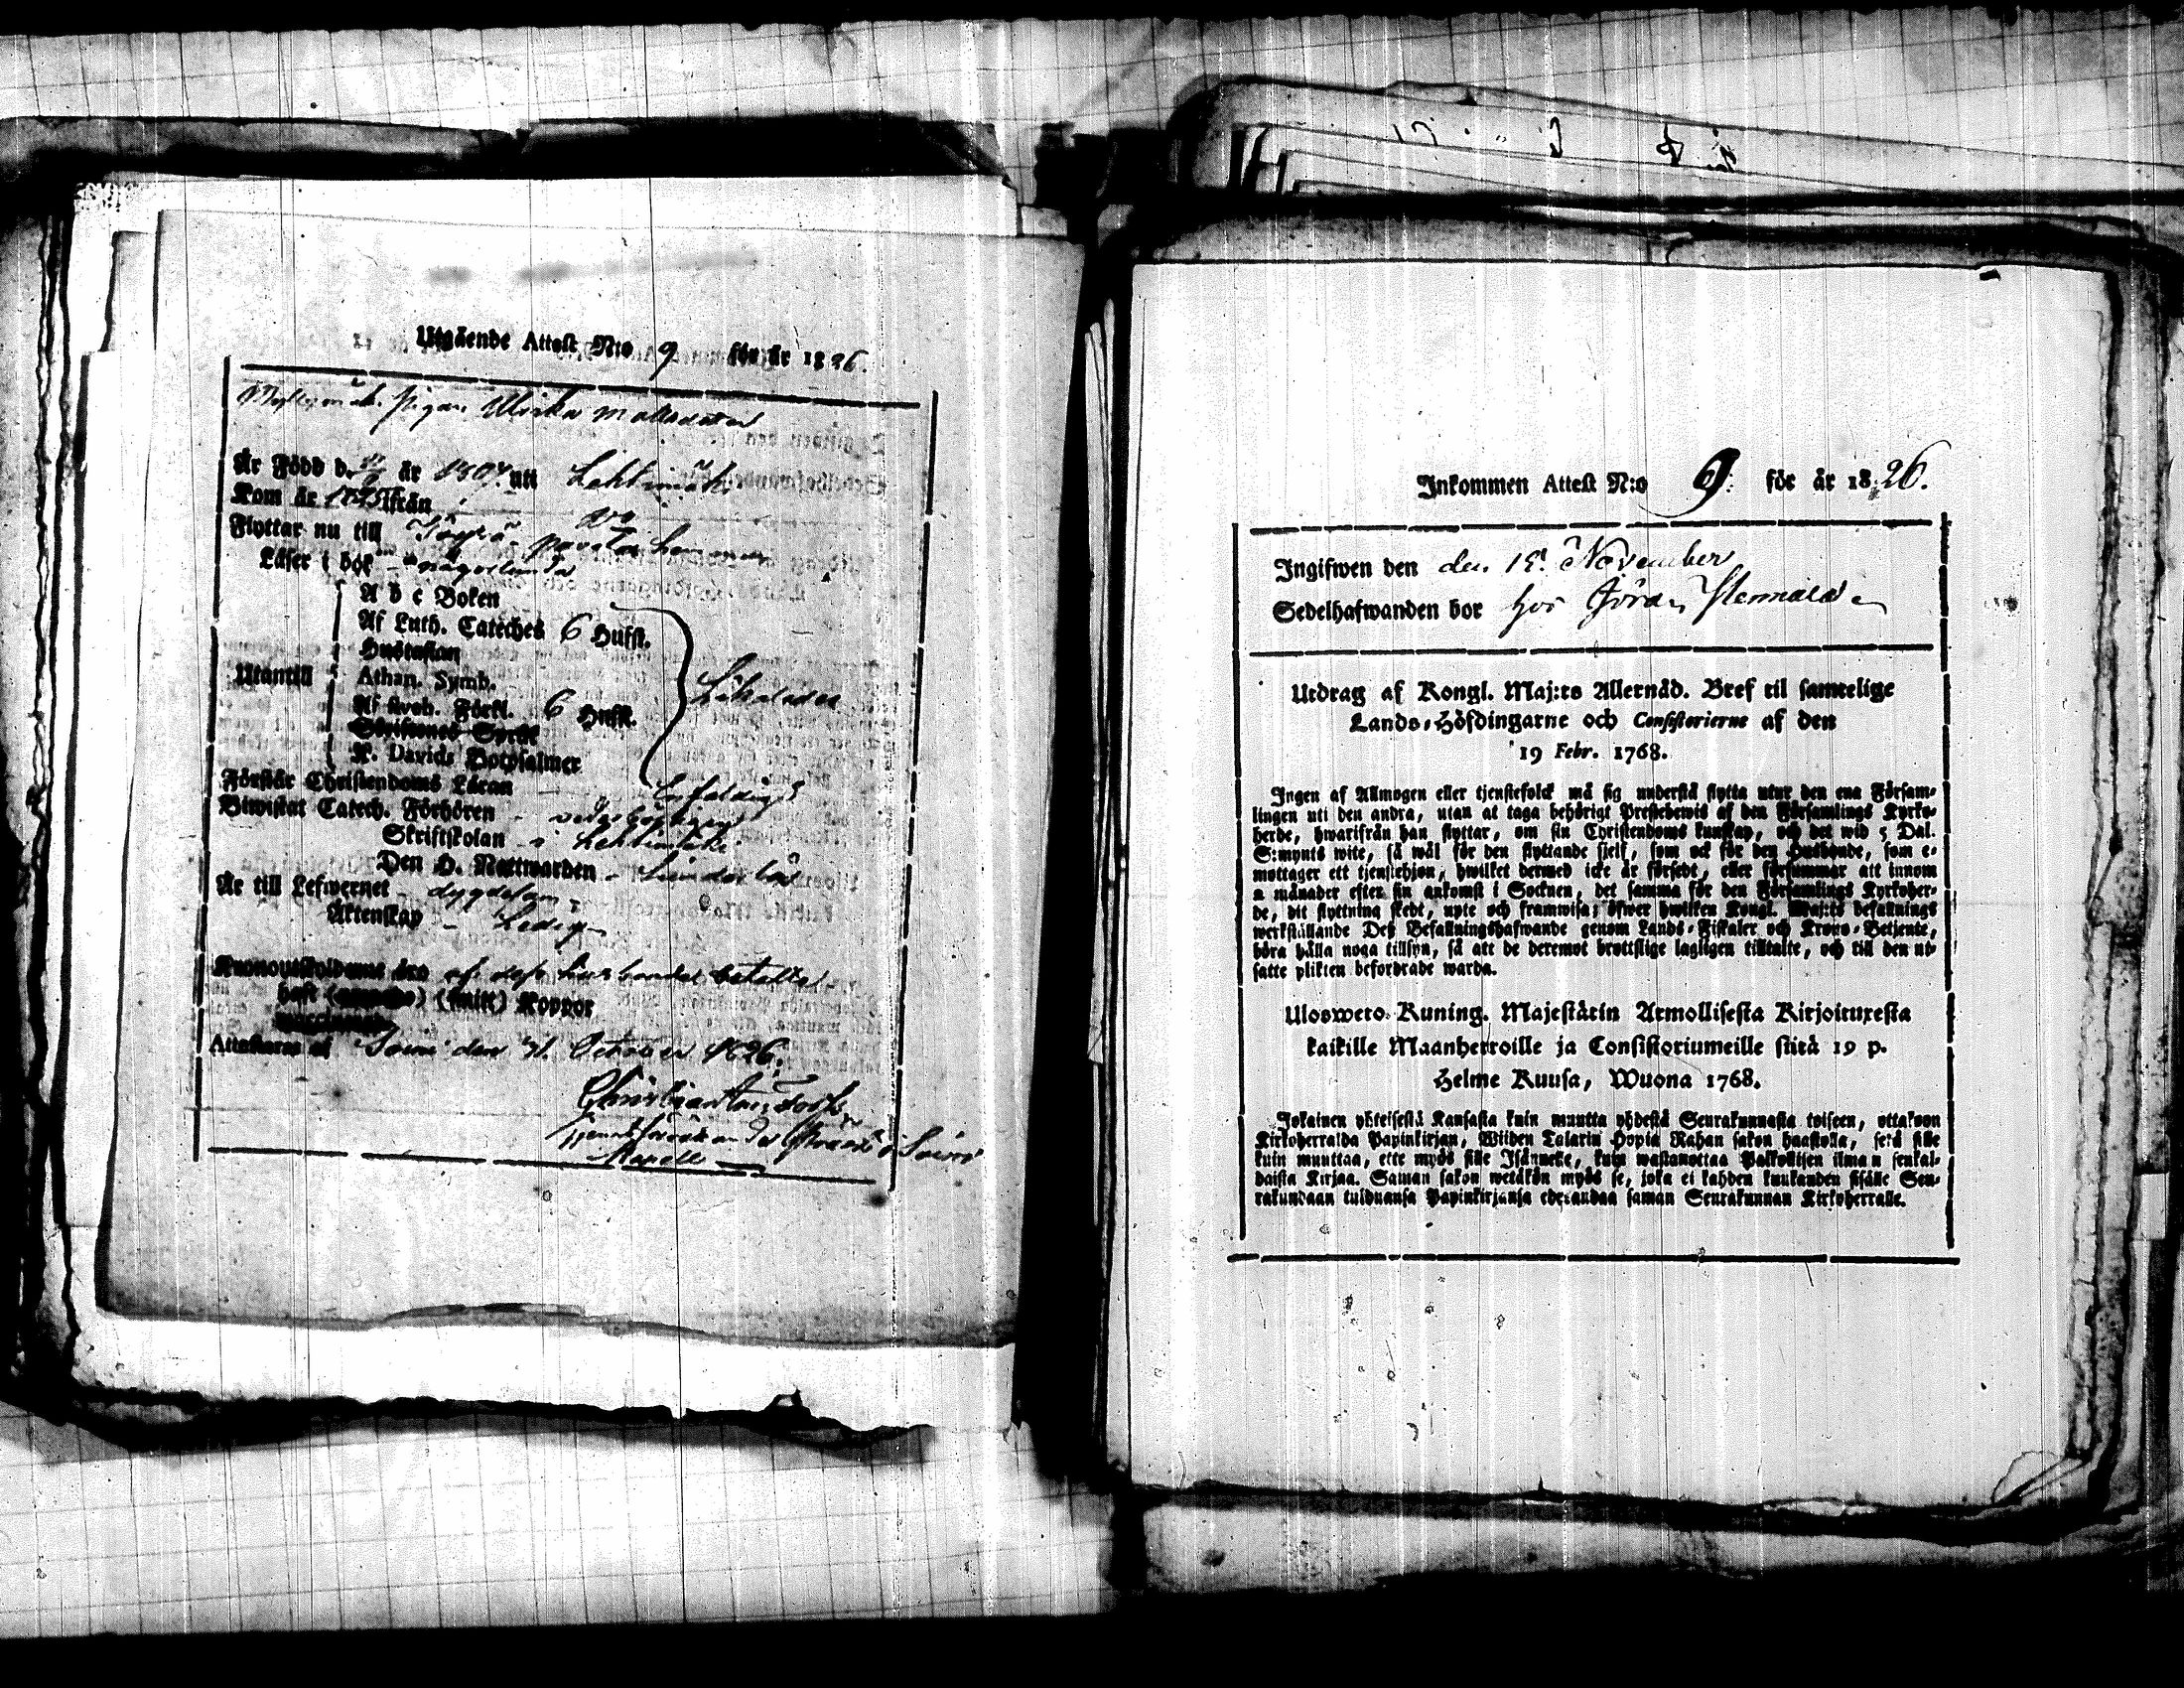 Utgående Attest N:o 9 för år 1826.
pigan Ulrika Mattsdotter
Är Född d. år 1807 uti Lehtimäki
Kom år 1825 ifrån
Flyttar nu till
Läser i bok någorlunda
A b c Boken
Af Luth. Cateches 6 Hufst.
Hustaflan
Utantill Athan. Symb.
Af Sweb. Förkl. 6 Hufst.
Skriftenes Språk
K. Davids Botpsalmer
Förstår Christendoms Läran
Biwistat Catech. Förhören - vederbörligen
Skriftskolan i Lehtimäki
Den H. Nattwarden -
Är till Lefwernet - dygdesam
Äktenskap - Ledig
Kronoutskylderne äro af dess husbonde betalte
haft (smitt) Koppor
Attesteras af Soini den 31. October 1826.
Christian
i Soini
Capell
Inkommen Attest N:o 9. för år 1826.
Ingifwen den den 18 November
Sedelhafwanden bor hos Jöran
Utdrag af Kongl. Maj:ts Allernåd. Bref til samtelige
Lands-Höfdingarne och Consistorierne af den
19 Febr. 1768.
Ingen af Allmogen eller tjenstefolck må sig understå flytta utur den ena Församlingen
lingen uti den andra, utan at taga behörigt Prestebewis af den Församlings Kyrko-
herde, hwarifrån han flyttar, om sin Christendoms kunskap, och det wid 5 Dal.
S:mynts wite, så wäl för den flyttande sjelf, som ock för den Husbonde, som e-
mottager ett tjenstehjon, hwilket dermed icke är försedt, eller försummar att innom
2 månader efter sin ankomst i Socknen, det samma för den Församlings Kyrkoher-
de, dit flyttning skedt, upte och framwisa; öfwer hwilken Kongl. Maj:ts befallnings
werkställande Deß Befallningshafwande genom Lands-Fiskaler och Krono-Betjente,
böra hålla noga tillsyn, så att de deremot brottslige lagligen tilltalte, och till den ut-
satte plikten befordrade warda.
Ulosweto Kuning. Majestätin Armollisesta Kirjoituxesta
kaikille Maanherroille ja Consistoriumeille siitä 19 p.
Helme Kuusa, Wuona 1768.
Jokainen yhteisestä Kansasta kuin muutta yhdestä Seurakunnasta toiseen, ottakoon
Kirkoherralda Papinkirjan, Wiiden Talarin Hopia Rahan sakon haastolla, sekä sille
kuin muuttaa, ette myös sille Isänneke, kuin wastanottaa Palkollisen ilman senkal-
daista Kirjaa. Saman sakon wetäkön myös se, joka ei kahden kuukauden sisälle Seu-
rakundaan tulduansa Papinkirjansa edesandaa saman Seurakunnan Kirkoherralle.